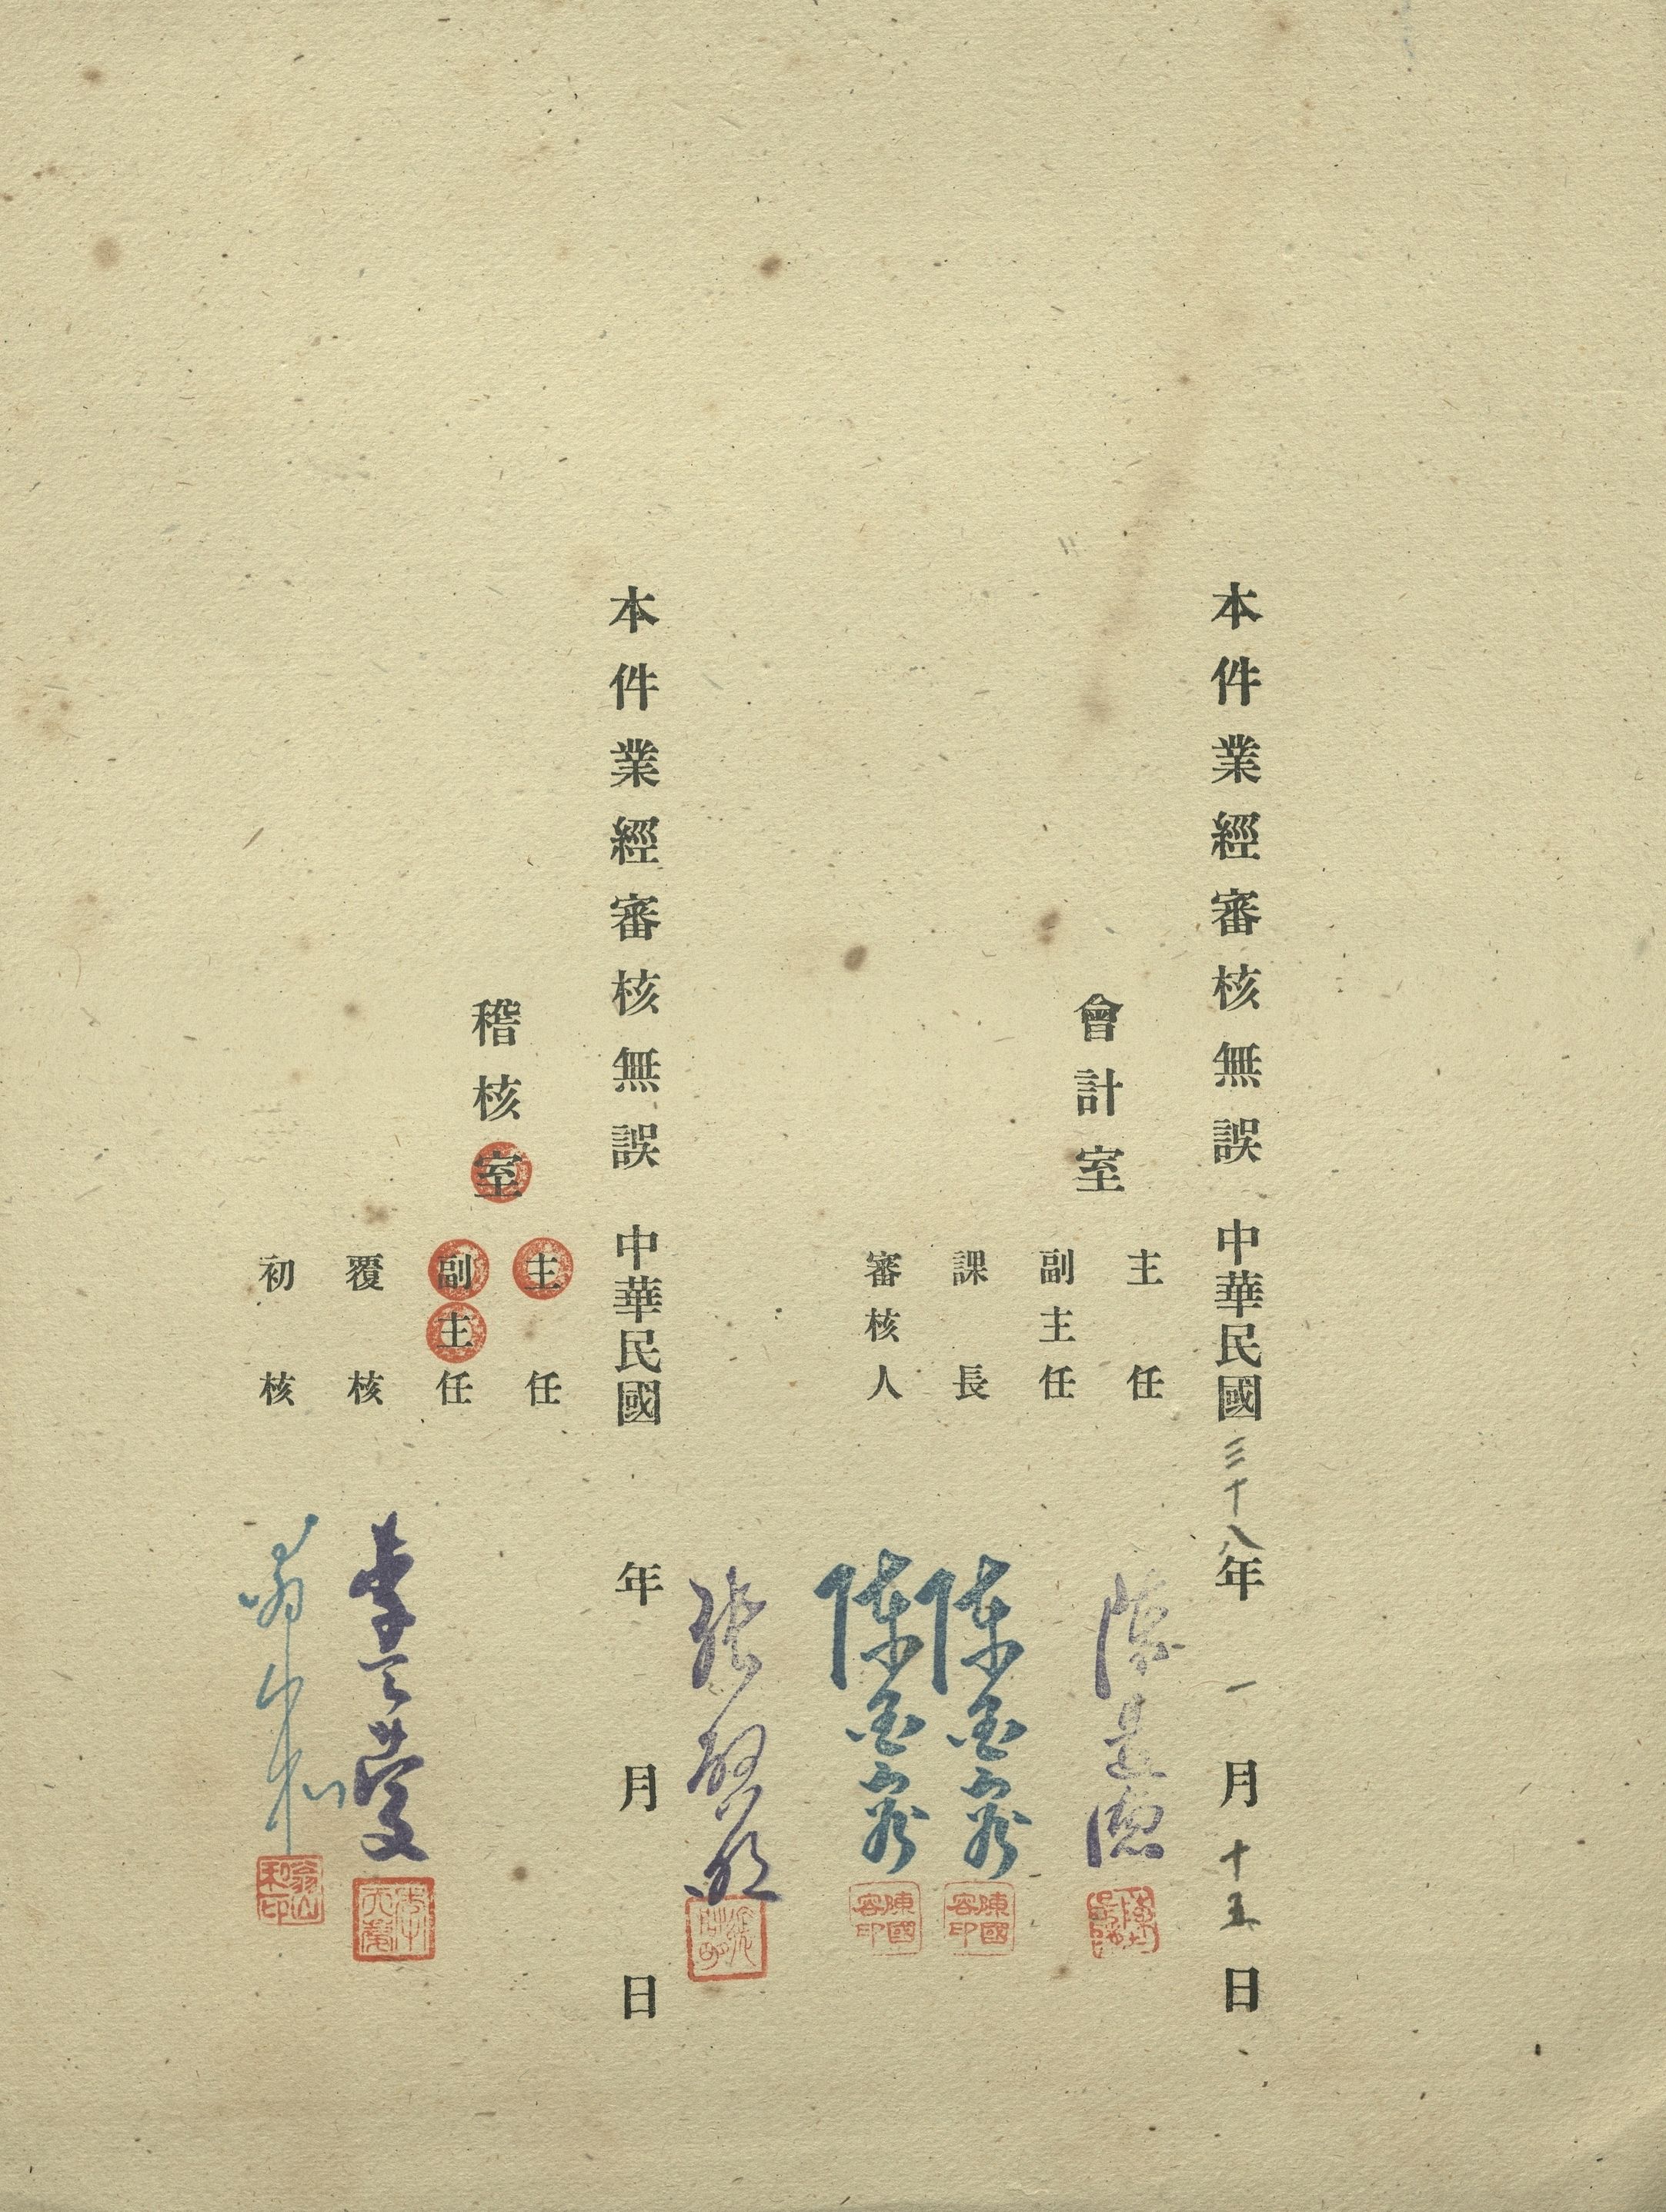 本件業經審核無誤 中華民國三十八年一月十五日
會計室
主任
副主任
課長
審核人
陳國容
陳國容
陳國容印
陳國容印
本件業經審核無誤 中華民國 年 月 日
稽核室
主任
副主任
覆核
初核
翁山和
翁山和印